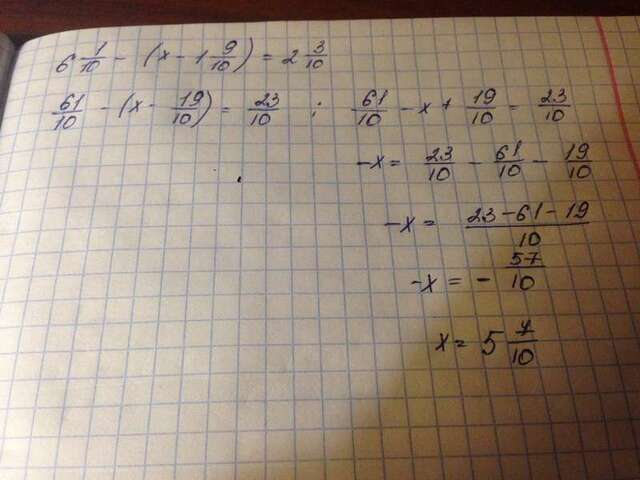 6 1/10 - (x - 1 9/10) = 2 3/10
61/10 - (x - 19/10) = 23/10 ; 61/10 - x + 19/10 = 23/10
-x = 23/10 - 61/10 - 19/10
-x = (23 - 61 - 19)/10
-x = - 57/10
x = 5 7/10